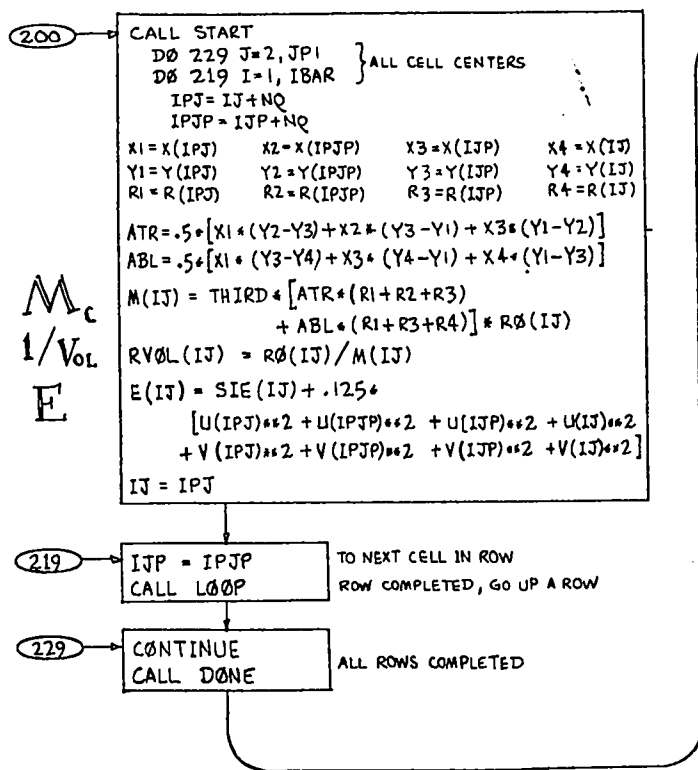 200
CALL START
DØ 229 J=2, JP1
DØ 219 I=1, IBAR
} ALL CELL CENTERS
IPJ= IJ+NQ
IPJP = IJP+NQ
X1 = X(IPJ) X2 = X(IPJP) X3 = X(IJP) X4 = X(IJ)
Y1 = Y(IPJ) Y2 = Y(IPJP) Y3 = Y(IJP) Y4 = Y(IJ)
R1 = R(IPJ) R2 = R(IPJP) R3 = R(IJP) R4 = R(IJ)
ATR = .5*[X1*(Y2-Y3)+X2*(Y3-Y1)+X3*(Y1-Y2)]
ABL = .5*[X1*(Y3-Y4)+X3*(Y4-Y1)+X4*(Y1-Y3)]
Mc
M(IJ) = THIRD*[ATR*(R1+R2+R3)
+ ABL*(R1+R3+R4)]*RØ(IJ)
1/VOL
RVØL(IJ) = RØ(IJ)/M(IJ)
E
E(IJ) = SIE(IJ) + .125*
[U(IPJ)**2 + U(IPJP)**2 + U[IJP)**2 + U(IJ)**2
+ V(IPJ)**2 + V(IPJP)**2 + V(IJP)**2 + V(IJ)**2]
IJ = IPJ
219
IJP = IPJP TO NEXT CELL IN ROW
CALL LØØP ROW COMPLETED, GO UP A ROW
229
CØNTINUE
CALL DØNE
ALL ROWS COMPLETED